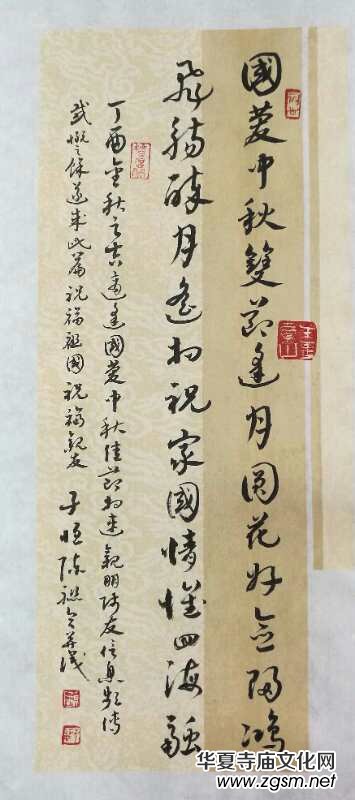 國慶中秋雙節逢月圓花好念歸鴻
飛觴醉月遙相祝家國情懷四海融
丁酉金秋之吉適逢國慶中秋佳節相連親朋友信息頻傳
感慨之餘遂成此篇祝福祖國祝福親友
子恒陳並識
华夏寺庙文化网
www.zgsm.net